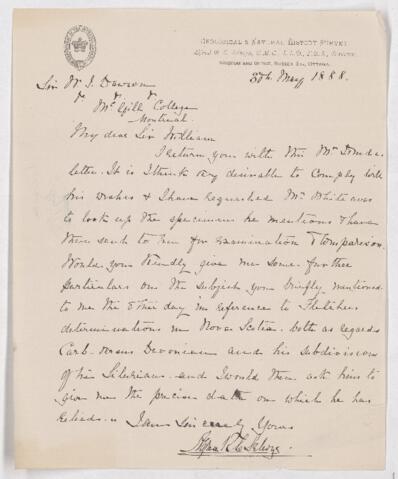 GEOLOGICAL & NATURAL HISTORY SURVEY
Alfred R. C. Selwyn, C.M.G., LL.D., F.R.S., Director
MUSEUM AND OFFICE, SUSSEX ST., OTTAWA.
30th May 1888.
Sir W. J. Dawson
McGill College
Montreal
My dear Sir William
I return you with this Mr
letter. It is I think very desirable to comply with
his wishes & I have requested Mr Whiteaves
to look up the specimens he mentions & have
them sent to him for examination & comparison.
Would you kindly give me some further
particulars on the subject you briefly mentioned
to me the other day in reference to Fletcher's
determinations in Nova Scotia. both as regards
Carb. versus Devonian and his subdivision
of his Silurians. and I would then ask him to
give me the precise data on which he has
I am Sincerely Yours
Alfred R. C. Selwyn.